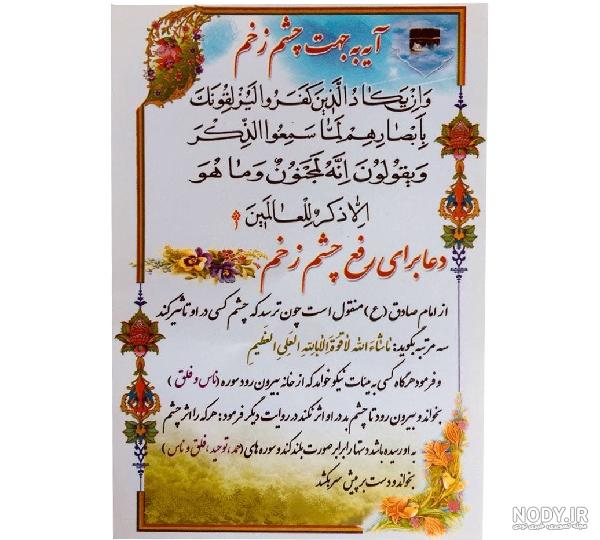 آیه به جهت چشم زخم
وَاِنْ يَكَادُ الَّذِينَ كَفَرُوا لَيُزْلِقُونَكَ
بِاَبْصَارِهِمْ لَمَّا سَمِعُوا الذِّكْرَ
وَيَقُولُونَ اِنَّهُ لَمَجْنُونٌ وَمَا هُوَ
اِلَّا ذِكْرٌ لِلْعَالَمِينَ
دعا برای رفع چشم زخم
از امام صادق (ع) منقول است چون ترسد که چشم کسی در او تاثیر کند
سه مرتبه بگوید: ماشاءَ الله لا قوة اِلّا بِاللهِ العَلِیِ العَظیمِ
و فرمود هرگاه کسی به هیئات نیکو خواهد که از خانه بیرون رود سوره (ناس و فلق)
بخواند و بیرون رود تا چشم بد در او اثر نکند در روایت دیگر فرمود: هر که را اثر چشم
به او رسیده باشد دستها را برابر صورت بلند کند و سوره های (حمد، توحید، فلق و ناس)
بخواند و دست بر پیش سر بکشد
NODY.IR